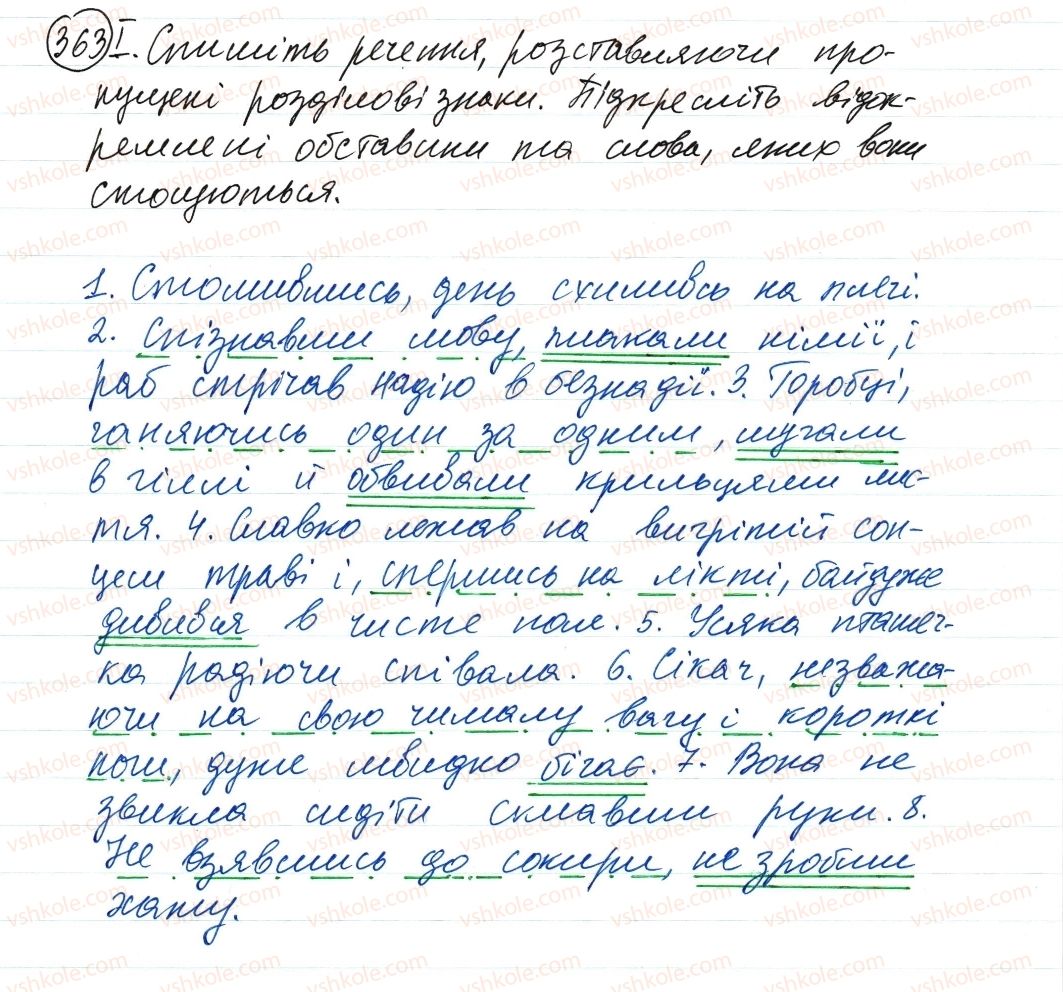 363 I. Спишіть речення, розставляючи про-
пущені розділові знаки. Підкресліть відок-
ремлені обставини та слова, яких вони
стосуються.
1. Стомившись, день схиливсь на плечі.
2. Спізнавши мову, плакали німії, і
раб стрічав надію в безнадії. 3. Горобці,
ганяючись один за одним, шугали
в гіллі й оббивали крильцями лис-
тя. 4. Славко лежав на вигрітій сон-
цем траві і, спершись на лікті, байдуже
дивився в чисте поле. 5. Усяка пташеч-
ка радіючи співала. 6. Сікач, незважа-
ючи на свою чималу вагу і короткі
ноги, дуже швидко бігає. 7. Вона не
звикла сидіти склавши руки. 8.
Не взявшись до сокири, не зробиш
хату.